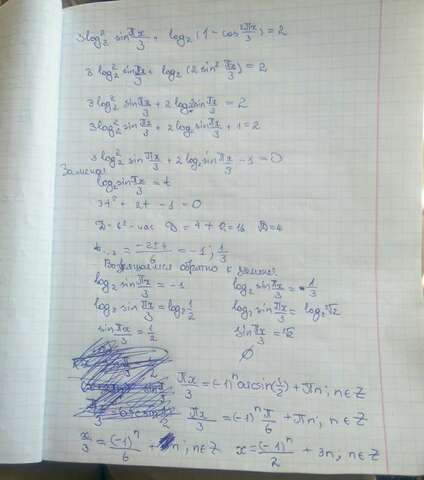 3log₂² sin πx/3 + log₂(1 - cos 2πx/3) = 2
3log₂² sin πx/3 + log₂(2 sin² πx/3) = 2
3log₂² sin πx/3 + 2log₂ 2sin πx/3 = 2
3log₂² sin πx/3 + 2log₂ sin πx/3 + 1 = 2
3log₂² sin πx/3 + 2log₂ sin πx/3 - 1 = 0
Замена:
log₂ sin πx/3 = t
3t² + 2t - 1 = 0
D = 4 + 12 = 16 √D = 4
t₁,₂ = -2±4/6 = -1; 1/3
Возвращаемся обратно к замене:
log₂ sin πx/3 = -1 log₂ sin πx/3 = 1/3
log₂ sin πx/3 = log₂ 1/2 log₂ sin πx/3 = log₂ ∛2
sin πx/3 = 1/2 sin πx/3 = ∛2
∅
πx/3 = (-1)ⁿ arcsin(1/2) + πn; n∈Z
πx/3 = (-1)ⁿ π/6 + πn; n∈Z
x/3 = (-1)ⁿ/6 + n; n∈Z x = (-1)ⁿ/2 + 3n; n∈Z